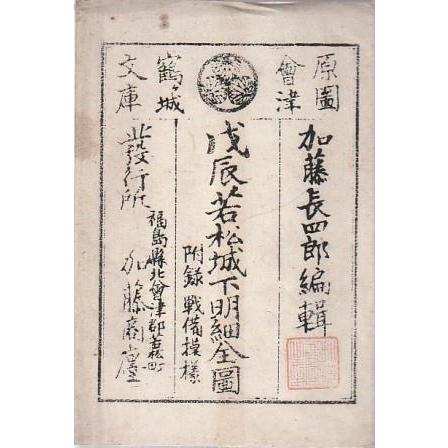 原圖
會津
鶴ヶ城
文庫
加藤長四郎編輯
戊辰若松城下明細全圖
附錄 戰備模樣
發行所
福島縣北會津郡若松町
加藤商廛